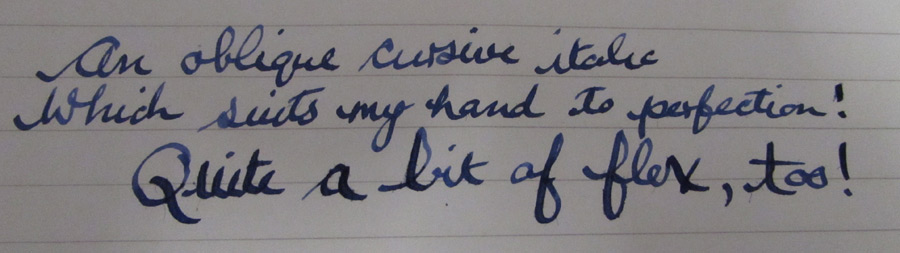 An oblique cursive italic
Which suits my hand to perfection!
Quite a bit of flex, too!